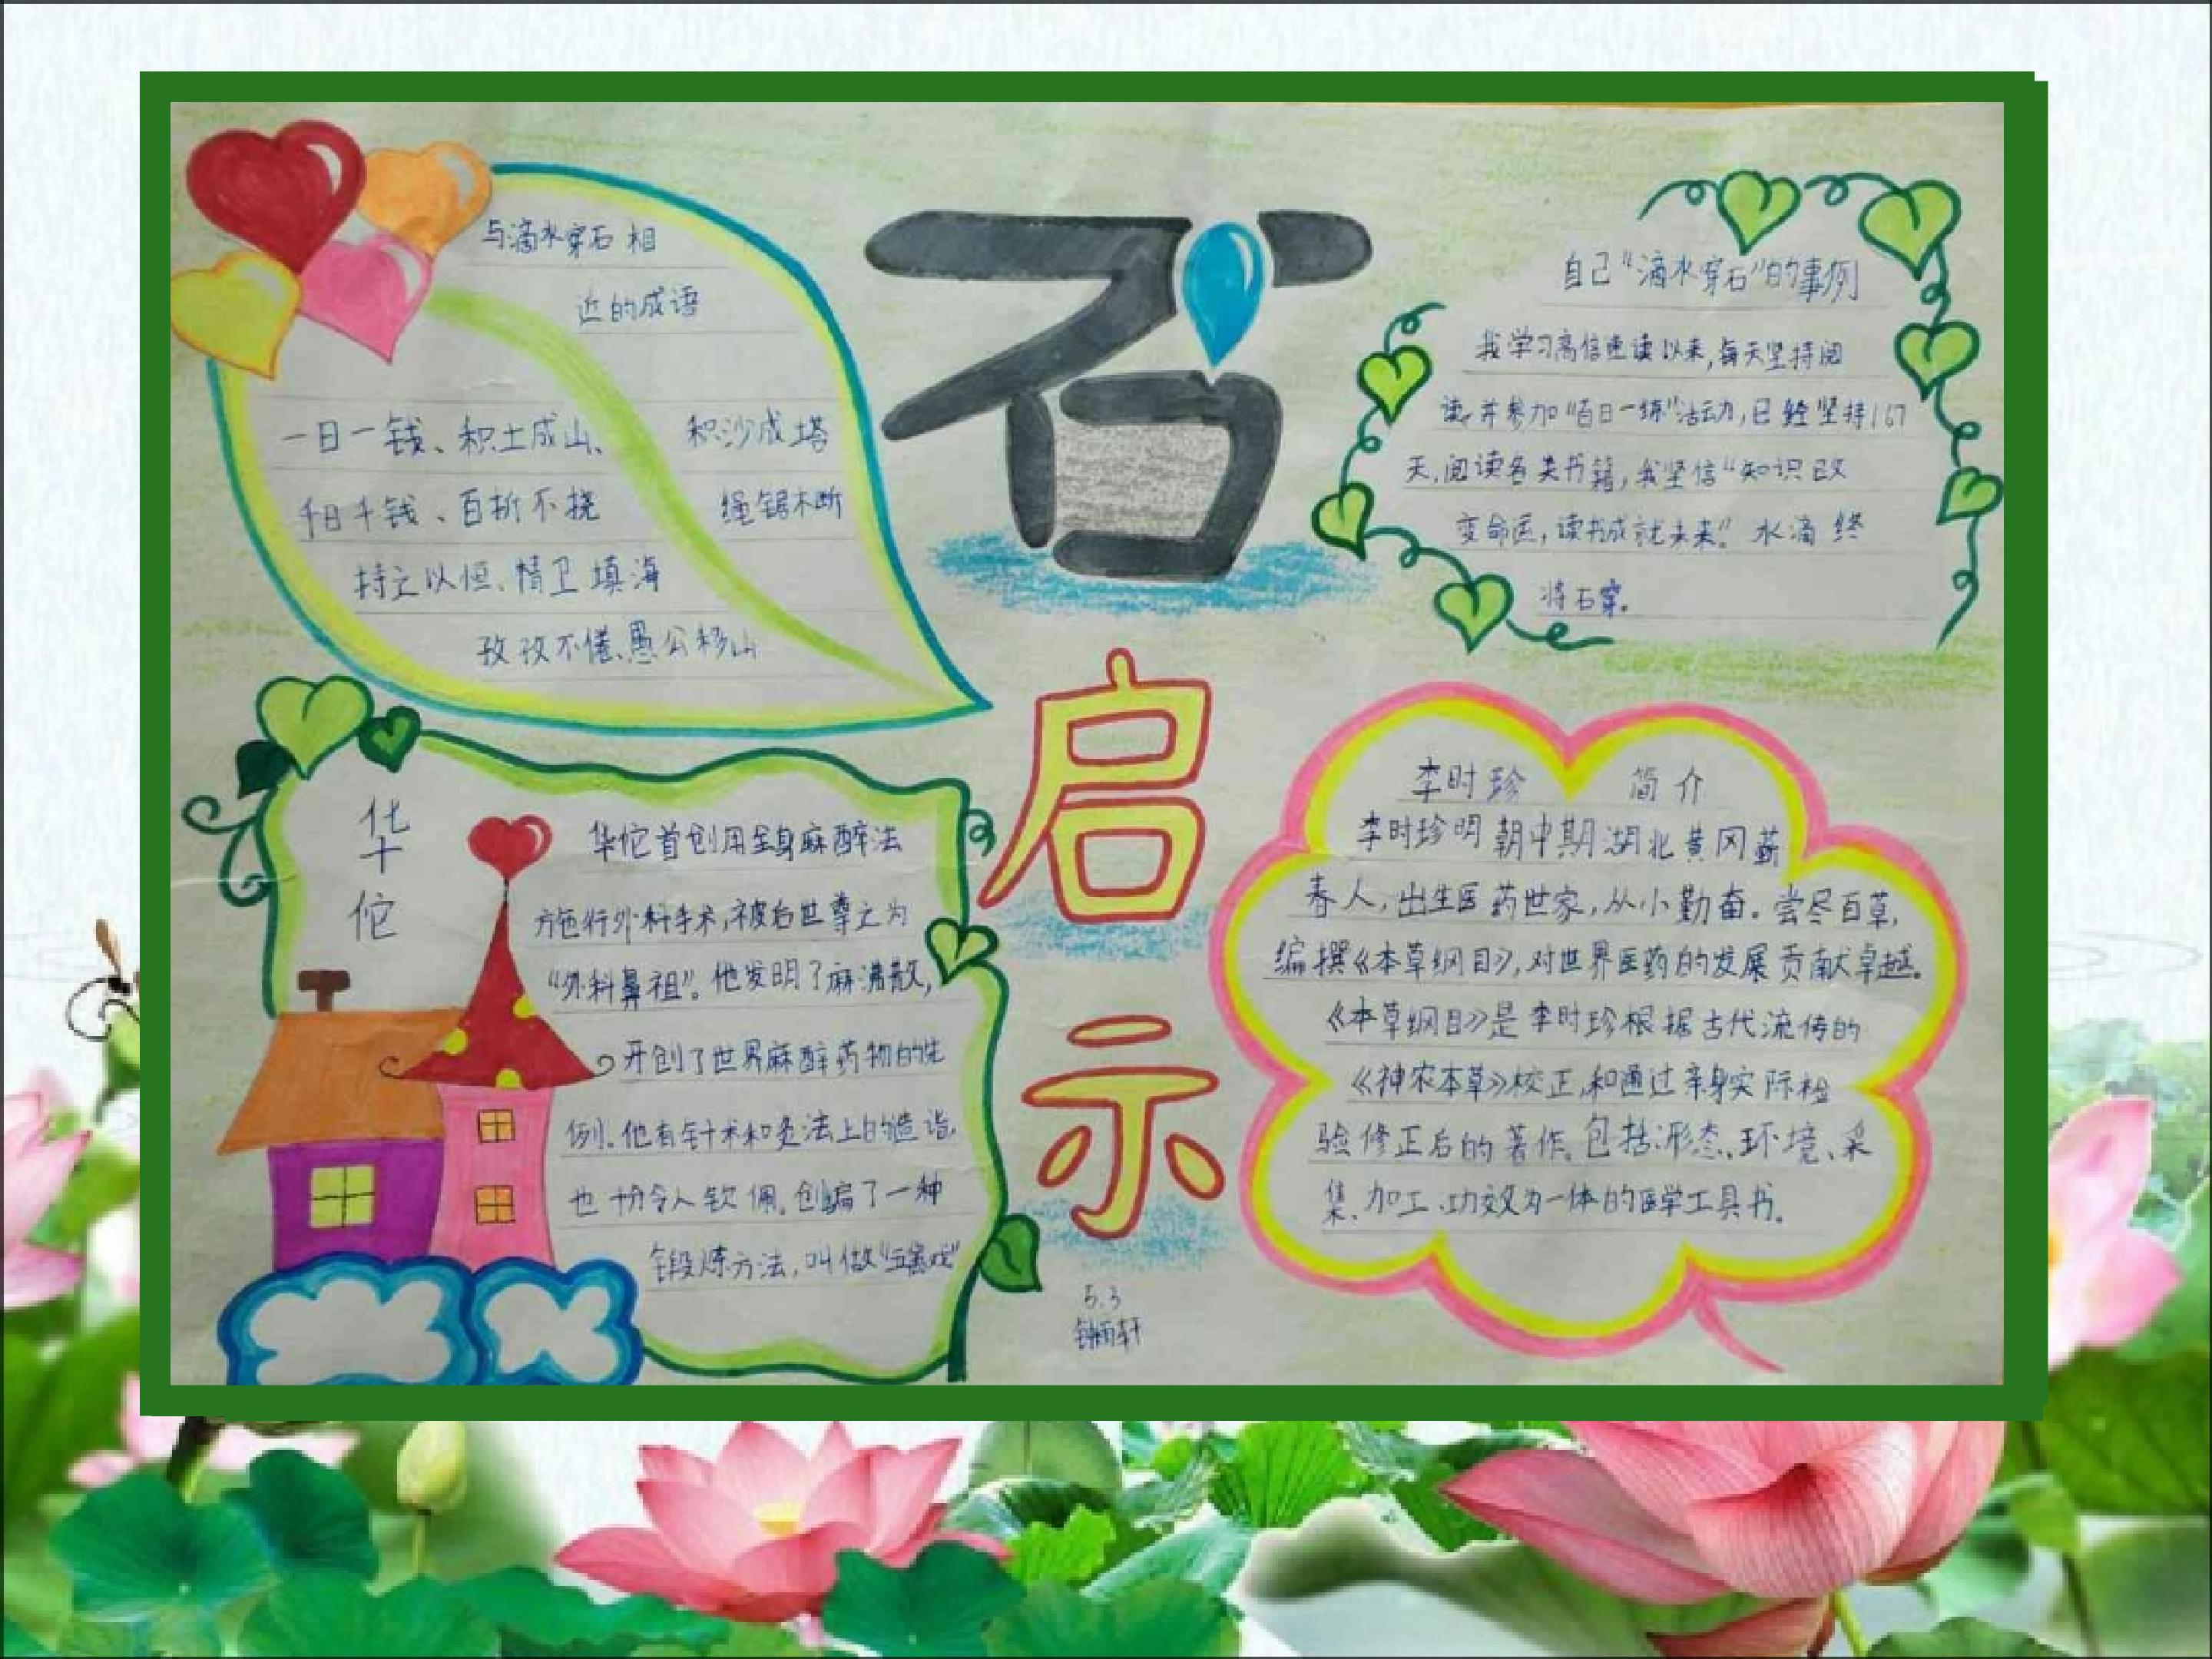 与滴水穿石相
近的成语
一日一钱、积土成山、 积沙成塔
千日千钱、百折不挠 绳锯木断
持之以恒、精卫填海
孜孜不倦、愚公移山
石
启
示
自己“滴水穿石”的事例
我学习高倍速读以来,每天坚持阅
读,并参加“百日一练”活动,已经坚持167
天,阅读各类书籍,我坚信“知识改
变命运,读书成就未来!”水滴终
将石穿。
华
佗
华佗首创用全身麻醉法
施行外科手术,被后世尊之为
“外科鼻祖”。他发明了麻沸散,
开创了世界麻醉药物的先
例。他在针术和灸法上的造诣,
也十分令人钦佩。创编了一种
锻炼方法,叫做“五禽戏”
李时珍 简介
李时珍明朝中期湖北黄冈蕲
春人,出生医药世家,从小勤奋。尝尽百草,
编撰《本草纲目》,对世界医药的发展贡献卓越。
《本草纲目》是李时珍根据古代流传的
《神农本草》校正,和通过亲身实际检
验修正后的著作。包括:形态、环境、采
集、加工、功效为一体的医学工具书。
5.3
雨轩